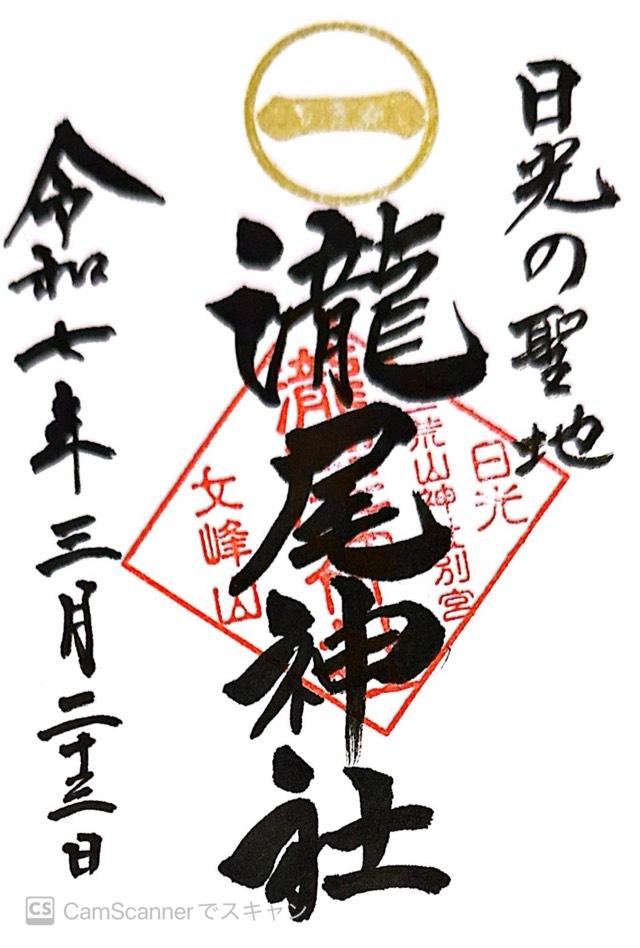 日光の聖地
瀧尾神社
令和七年三月二十三日
日光
二荒山神社別宮
女峰山
CS CamScannerでスキャン